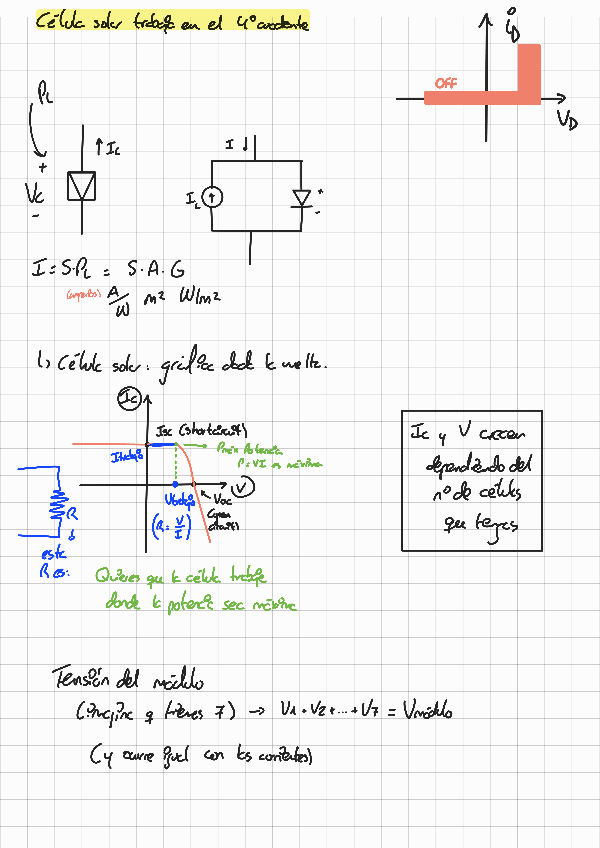 Célula solar trabaja en el 4º cuadrante
iD
OFF
VD
PL
↑ Ic
+
Vc
-
I ↓
IL
+
-
I = S·PL = S·A·G
(amperios) A/W m² W/m²
↳ Célula solar: gráfica dada la vuelta.
Ic
Isc (shortcircuit)
Itrabajo
Pmáx Potencia
P=VI es máxima
V
Vtrabajo
Voc
(open circuit)
(R = V/I)
R
esta
R es:
Quieres que la célula trabaje
donde la potencia sea máxima
Ic y V crecen
dependiendo del
nº de células
que tengas
Tensión del módulo
(imagina q tienes 7) → V1 + V2 + ... + V7 = Vmódulo
(y ocurre igual con las corrientes)